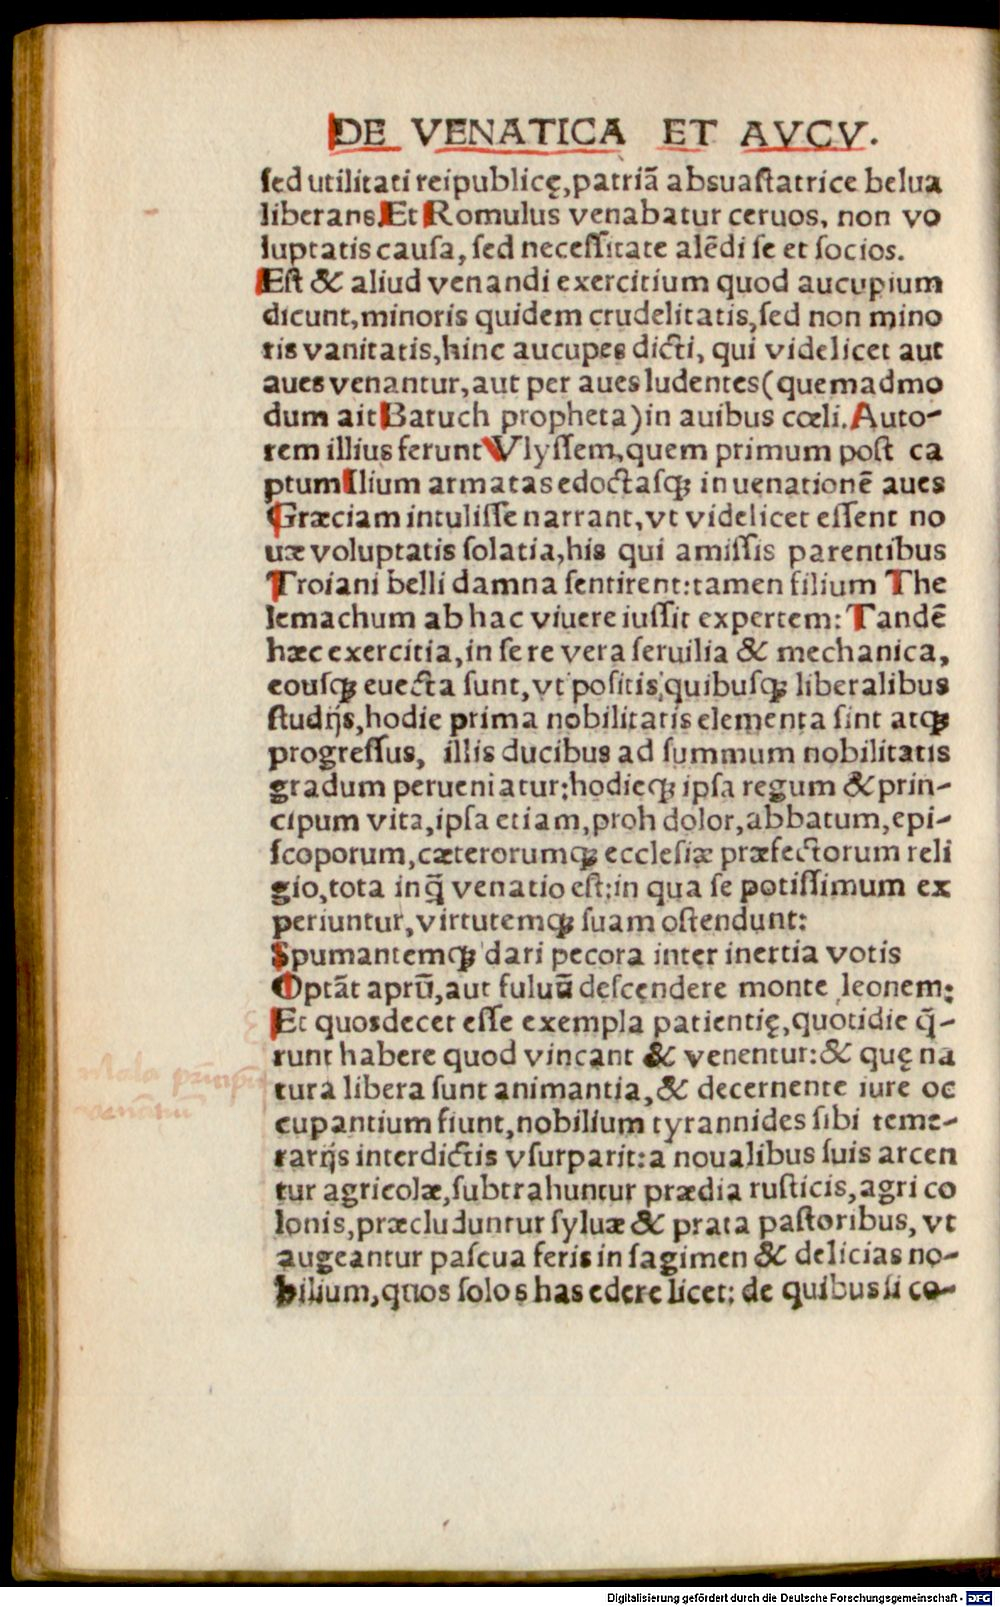 DE VENATICA ET AVCV.
ſed utilitati reipublicę,patriã absuaſtatrice belua
liberans.Et Romulus venabatur ceruos, non vo
luptatis cauſa, ſed neceſſitate alẽdi ſe et ſocios.
Eſt & aliud venandi exercitium quod aucupium
dicunt,minoris quidem crudelitatis,ſed non mino
ris vanitatis,hinc aucupes dicti, qui videlicet aut
aues venantur,aut per aues ludentes(quemadmo
dum ait Baruch propheta)in auibus cœli. Auto-
rem illius ferunt Vlyſſem,quem primum poſt ca
ptum Ilium armatas edoctaſqꝫ in uenationẽ aues
Græciam intuliſſe narrant,vt videlicet eſſent no
uæ voluptatis ſolatia,his qui amiſſis parentibus
Troiani belli damna ſentirent:tamen filium The
lemachum ab hac viuere iuſſit expertem: Tandẽ
hæc exercitia,in ſe re vera ſeruilia & mechanica,
eouſqꝫ euecta ſunt,vt poſitis,quibuſqꝫ liberalibus
ſtudijs,hodie prima nobilitatis elementa ſint atqꝫ
progreſſus, illis ducibus ad ſummum nobilitatis
gradum perueniatur:hodieqꝫ ipſa regum & prin-
cipum vita,ipſa etiam,proh dolor,abbatum,epi-
ſcoporum,cæterorumqꝫ eccleſiæ præfectorum reli
gio,tota inq̃ venatio eſt:in qua ſe potiſſimum ex
periuntur,virtutemqꝫ ſuam oſtendunt:
Spumantemqꝫ dari pecora inter inertia votis
Optãt aprũ,aut fuluũ deſcendere monte leonem:
Et quos decet eſſe exempla patientię,quotidie q̃-
runt habere quod vincant & venentur:& quę na
tura libera ſunt animantia,& decernente iure oc
cupantium fiunt,nobilium tyrannides ſibi teme-
rarijs interdictis vſurparit:a noualibus ſuis arcen
tur agricolæ,ſubtrahuntur prædia ruſticis,agri co
lonis,præcluduntur ſyluæ & prata paſtoribus, vt
augeantur paſcua feris in ſagimen & delicias no-
bilium,quos ſolos has edere licet: de quibus ſi co-
Mala
Digitalisierung gefördert durch die Deutsche Forschungsgemeinschaft - DFG